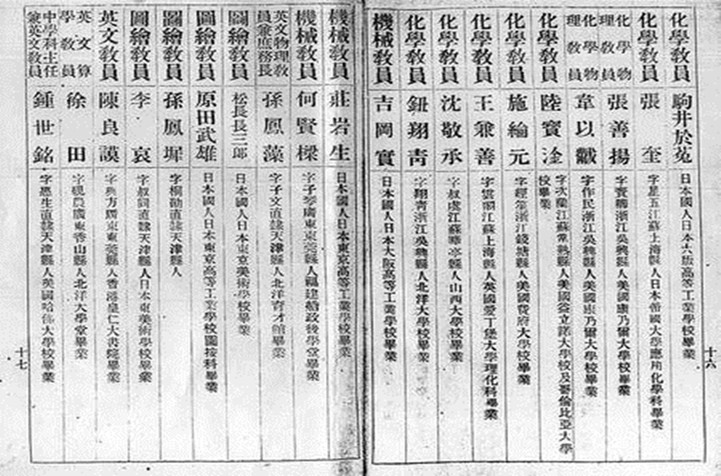 化學教員 駒井於菟 日本國人日本大阪高等工業學校畢業
化學教員 張奎 字星五江蘇上海縣人日本帝國大學應用化學科畢業
化學物理教員 張善揚 字浙江吳興縣人美國康乃爾大學校畢業
化學物理教員 韋以黻 字作民浙江吳興縣人美國康乃爾大學校畢業
化學教員 陸寶淦 字次蘭江蘇常熟縣人美國益立諾大學校及哥倫比亞大學
校畢業
化學教員 施綸元 字經笙浙江錢塘縣人美國費府大學校畢業
化學教員 王兼善 字雲閣江蘇上海縣人英國愛丁堡大學理化科畢業
化學教員 沈敬承 字叔虔江蘇華亭縣人山西大學校畢業
化學教員 鈕翔青 字翔青浙江吳興縣人北洋大學校畢業
機械教員 吉岡實 日本國人日本大阪高等工業學校畢業
十六
機械教員 莊岩生 日本國人日本東京高等工業學校畢業
機械教員 何賢樑 字子琴廣東東莞縣人福建船政後學堂畢業
英文物理教員兼庶務長 孫鳳藻 字子文直隸天津縣人北洋育才館畢業
圖繪教員 松長長三郎 日本國人日本東京美術學校畢業
圖繪教員 原田武雄 日本國人日本東京高等工業學校圖按科畢業
圖繪教員 孫鳳墀 字桐勛直隸天津縣人
圖繪教員 李哀 字叔同直隸天津縣人日本東京美術學校畢業
英文教員 陳良謨 字典方廣東東莞縣人香港皇仁大書院畢業
英文算學教員 徐田 字硯農廣東香山縣人北洋大學堂畢業
中學科主任兼英文教員 鍾世銘 字蕙生直隸天津縣人美國哈佛大學校畢業
十七